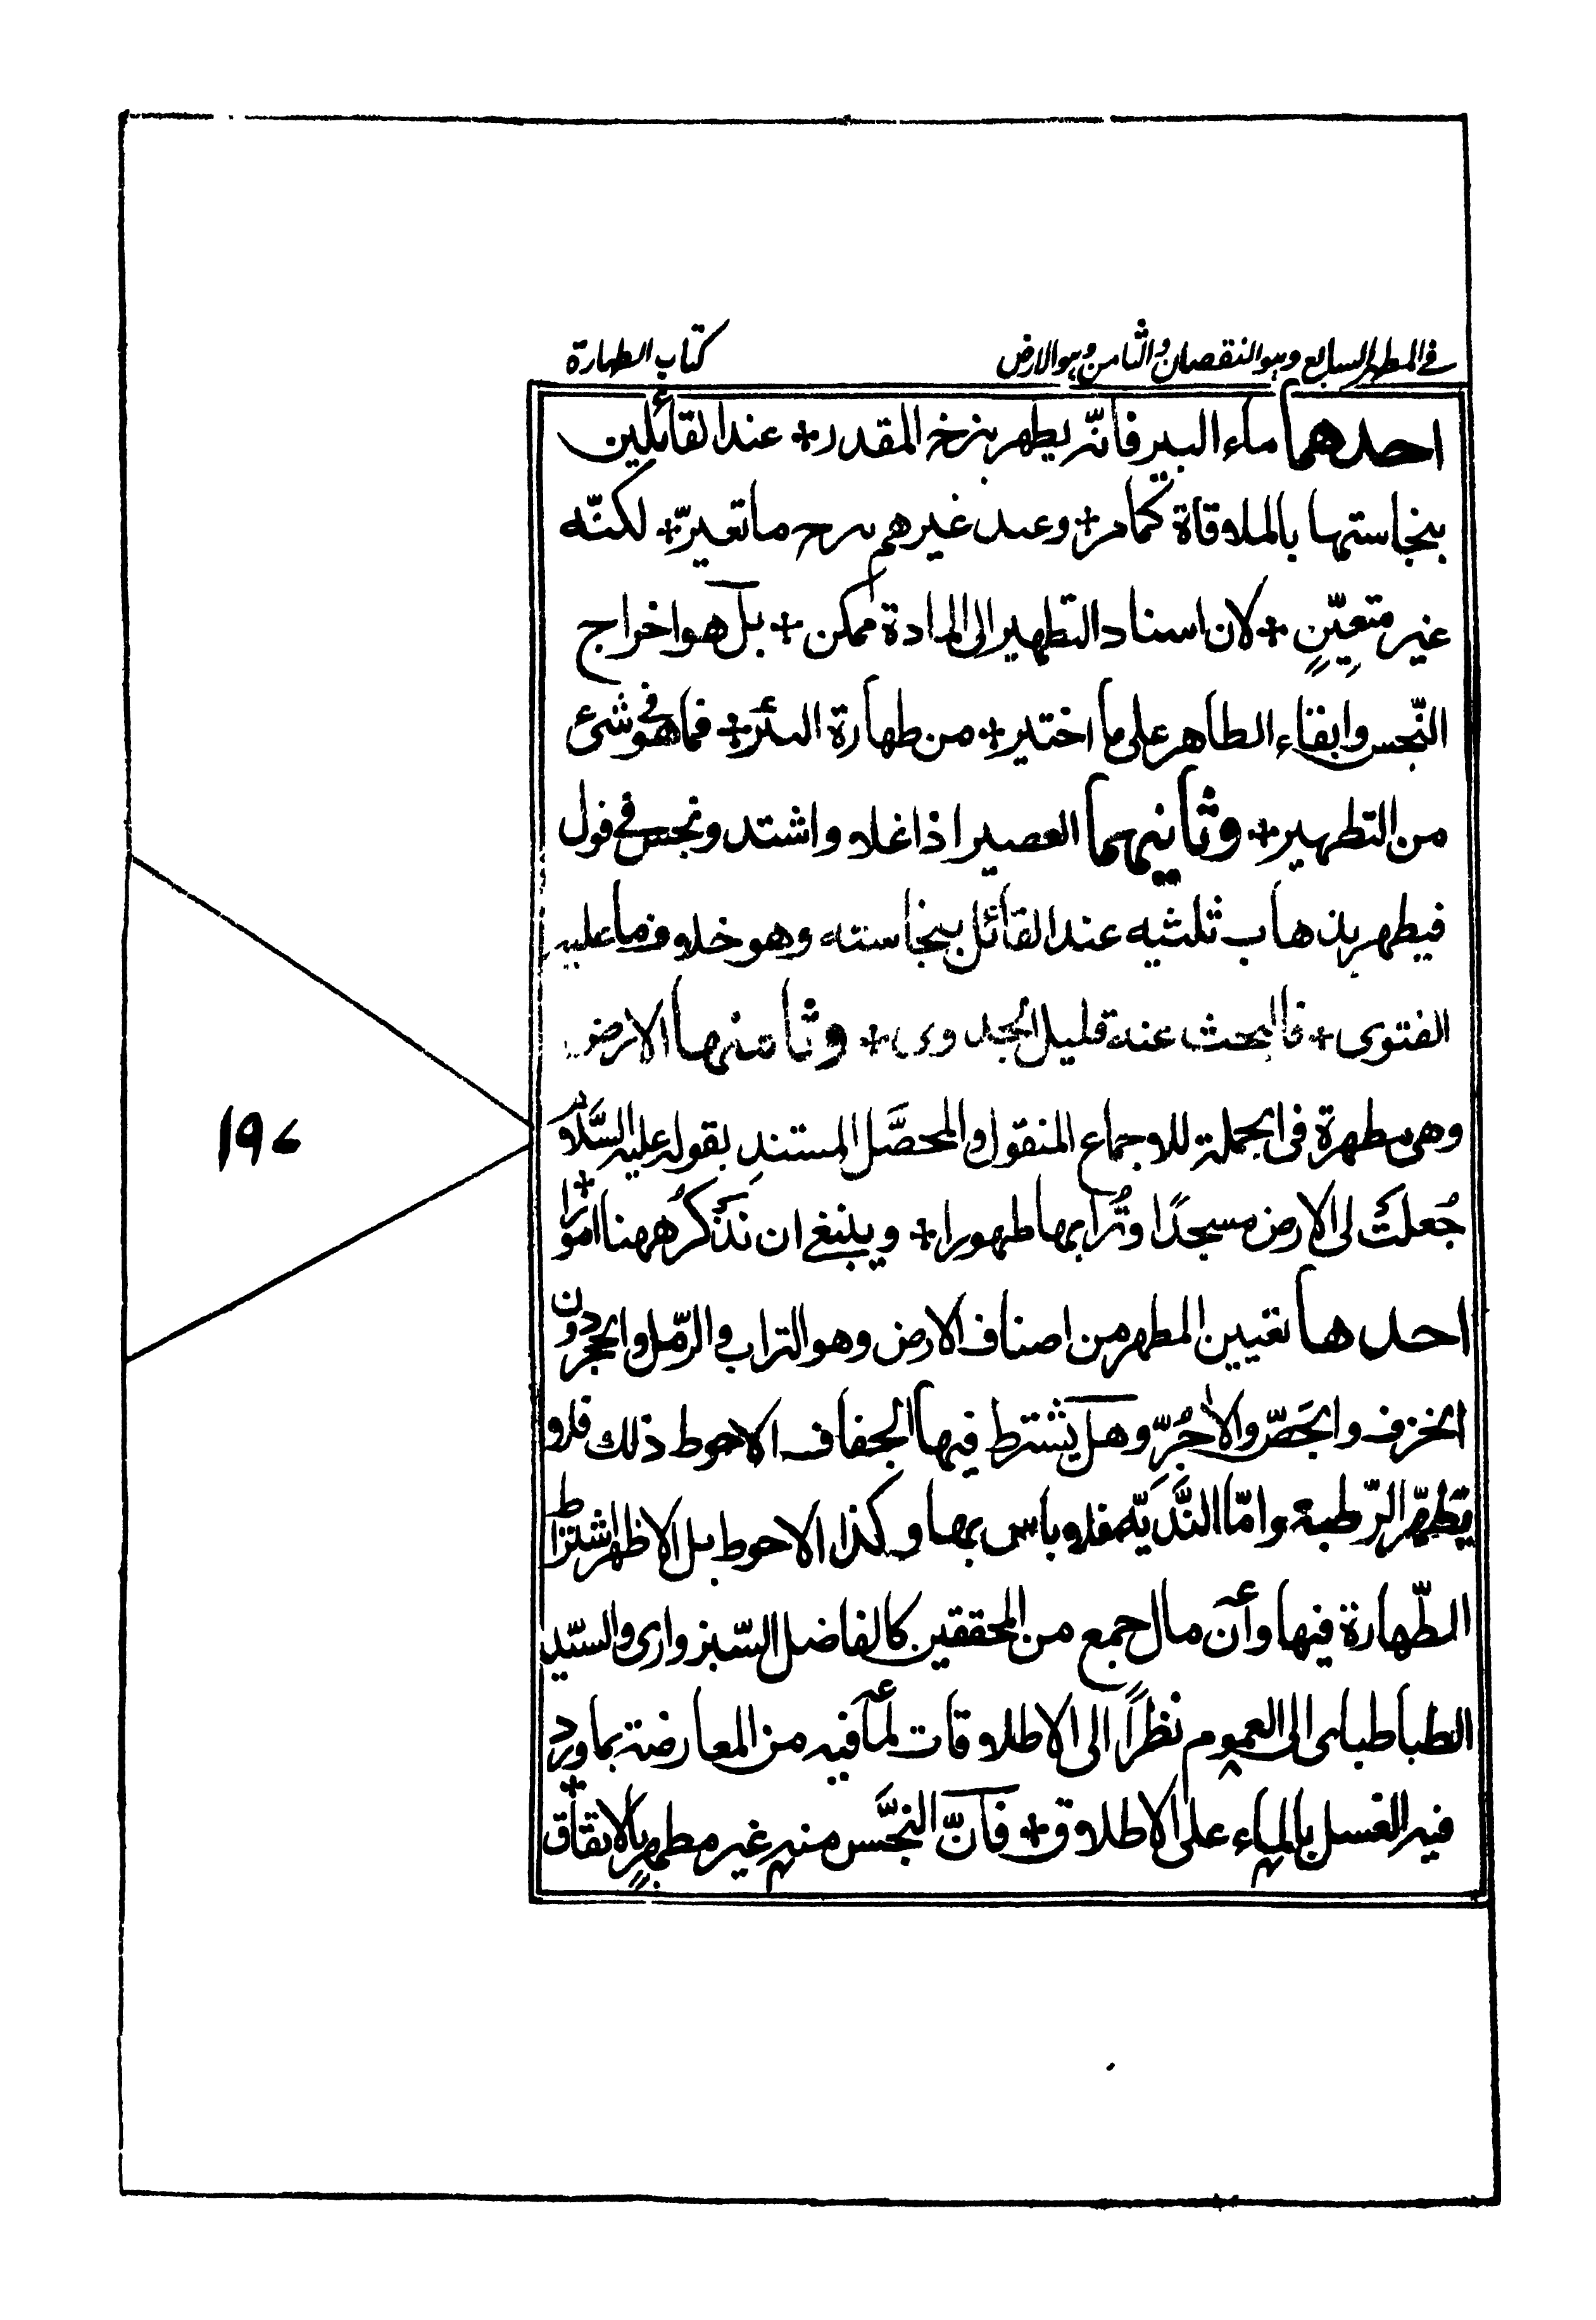 في المطهر السابع وهو النقصان والثامن وهو الارض
كتاب الطهارة
احدهما ماء البير فانّه يطهر بنزح المقدر + عند القائلين
بنجاستها بالملاقاة كما مر + وعند غيرهم بنزح ما تغيرّ + لكنّه
غير متعيّنٍ + لان اسناد التطهير الى المادة ممكن + بل هو اخراج
النّجس وابقاء الطاهر على ما اختير + من طهارة البئر + فما هو في شئ
من التطهير + وثانيهما العصير اذا غلا واشتد ونجس في قول
فيطهر بذهاب ثلثيه عند القائل بنجاسته وهو خلاف ما عليه
الفتوى + فالبحث عنه قليل الجدوى + وثامنها الارض
وهى مطهرة فى الجملة للاجماع المنقول والمحصَّل المستندِ بقوله عليه السَّلام
جُعلت لى الارض مسجدًا وتُرابها طهورا + وينبغى ان نَذكُر ههنا امورًا +
احدها تعيين المطهر من اصناف الارض وهو التراب والرّمل والحجر دون
الخزف والجَصّ والاٰجُرِّ وهل يشترط فيها الجفاف الاحوط ذلك فلا
يَطهّر الرّطبة وامّا النَّديّه فلا باس بها وكذا الاحوط بل الاظهر اشتراط
الطّهارة فيها وأن مال جمع من المحققين كالفاضل السّبزوارى والسّيد
الطباطباى الى العموم نظراً الى الاطلاقات لما فيه من المعارضة بما ورد
فيه الغسل بالماء على الاطلاق + فانّ النجَّس منه غير مطهرٍ بالاتفاق +
١٩٧